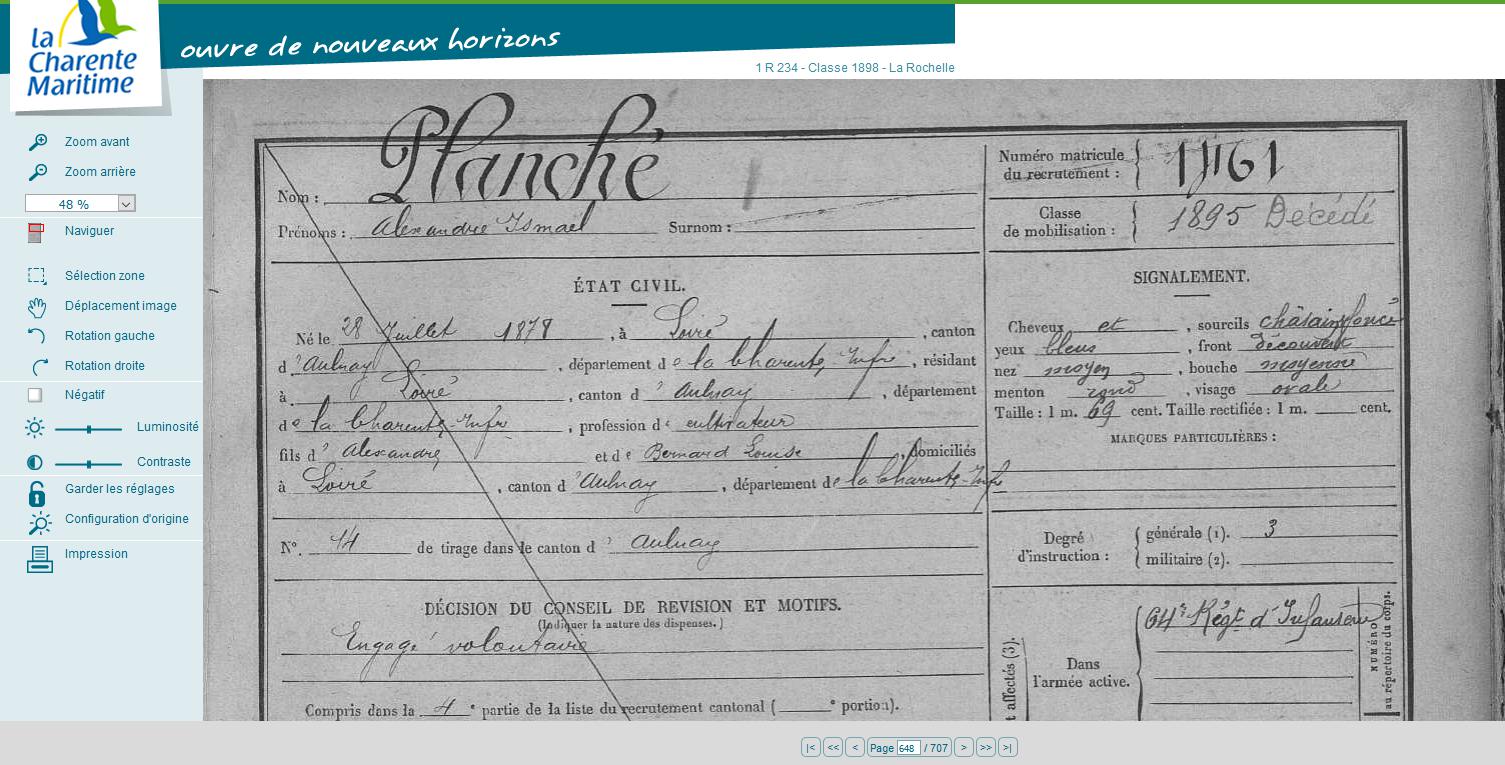 la
Charente
Maritime
ouvre de nouveaux horizons
1 R 234 - Classe 1898 - La Rochelle
Zoom avant
Zoom arrière
48 %
Naviguer
Sélection zone
Déplacement image
Rotation gauche
Rotation droite
Négatif
Luminosité
Contraste
Garder les réglages
Configuration d'origine
Impression
Nom : Planché
Prénoms : Alexandre Ismaël Surnom :
ÉTAT CIVIL.
Né le 28 Juillet 1878, à Loiré, canton
d'Aulnay, département de la Charente Infre, résidant
à Loiré, canton d'Aulnay, département
de la Charente-Infre, profession de cultivateur
fils d'Alexandre et de Bernard Louise, domiciliés
à Loiré, canton d'Aulnay, département de la Charente-Infre
N°. 44 de tirage dans le canton d'Aulnay
DÉCISION DU CONSEIL DE REVISION ET MOTIFS.
(Indiquer la nature des dispenses.)
Engagé volontaire
Compris dans la 4e partie de la liste du recrutement cantonal ( e portion).
Numéro matricule
du recrutement : 1161
Classe
de mobilisation : 1895 Décédé
SIGNALEMENT.
Cheveux et, sourcils châtain foncé
yeux bleus, front découvert
nez moyen, bouche moyenne
menton rond, visage ovale
Taille : 1 m. 69 cent. Taille rectifiée : 1 m. cent.
MARQUES PARTICULIÈRES :
Degré
d'instruction :
générale (1). 3
militaire (2).
64e Régt d'Infanterie
Dans
l'armée active.
t affectés (3).
NUMÉRO
au répertoire du corps.
|< << < Page 648 / 707 > >> >|